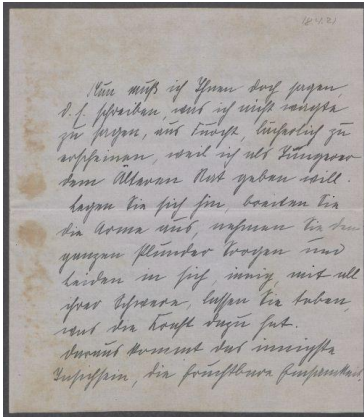 18.4.21
Nun muß ich Ihnen doch sagen,
d. h. schreiben, was ich nicht wagte
zu sagen, aus Furcht, lächerlich zu
erscheinen, weil ich als Jüngerer
dem Älteren Rat geben will.
Legen Sie sich hin, breiten Sie
die Arme aus, nehmen Sie den
ganzen Plunder Sorgen und
Leiden in sich innig, mit all
ihrer Schwere, lassen Sie toben,
was die Kraft dazu hat.
Daraus kommt das innigste
Insichsein, die fruchtbare Einsamkeit